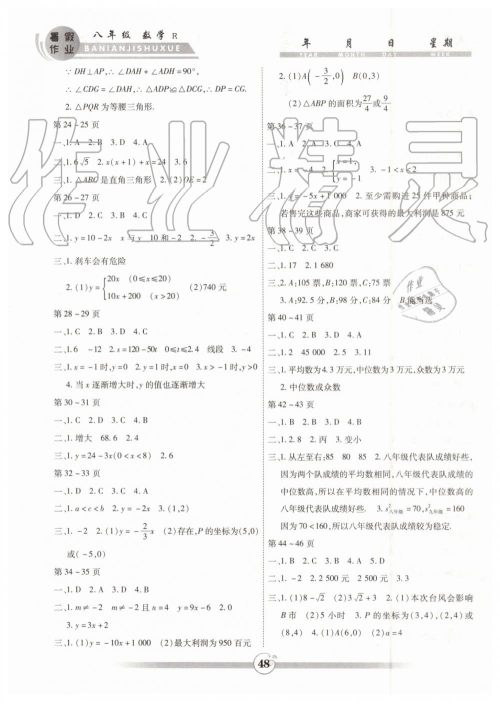 暑假作业 八年级 数学 R
BANIANJISHUXUE
年 月 日 星期
YEAR MONTH DAY WEEK
∵ DH⊥AP,∴ ∠DAH + ∠ADH = 90°,
∴ ∠CDG = ∠DAH,∴ △ADP≌△DCG,∴ DP = CG.
2. △PQR 为等腰三角形.
第 24－25 页
一、1. A 2. B 3. C
二、1. 6√3 2. x(x+1)+x=24 3. 6
三、1. △ABC 是直角三角形 2. (2)OE=2
第 26－27 页
二、1. y=10-2x x 与 y 10 和 -2 2. -3/2 3. y=2x
三、1. 刹车会有危险
2. (1)y={20x (0≤x≤20) 10x+200 (x>20) (2)740 元
第 28－29 页
一、1. C 2. B 3. D 4. B
二、1. 6 -12 2. s=120-50t 0≤t≤2.4 线段 3. -4
三、1. x=-1 时,y=0 2. y=1 时,x=0 3. x>-1 时,y>0
4. 当 x 逐渐增大时,y 的值也逐渐增大
第 30－31 页
一、1. C 2. D 3. D 4. B
二、1. 增大 68.6 2. 4
三、1. y=24-3x(0<x<8) 2. 6
第 32－33 页
一、1. D 2. B 3. A
二、1. a<c<b 2. 2 3. (1,2)
三、1. -2 2. (1)y=-2/3x (2)存在,P 的坐标为(5,0)
或(-5,0)
第 34－35 页
一、1. D 2. A 3. A 4. B
二、1. m≠-2 m≠-2 且 n=4 y=9x-6 2. 2
3. y=3x+2
三、1. (1)y=-10x+1 000 (2)最大利润为 950 百元
2. (1)A(-3/2,0) B(0,3)
(2)△ABP 的面积为27/4或9/4
第 36－37 页
三、1. y=-5x+1 000 2. 至少需购进 25 件甲种商品;
若售完这些商品,商家可获得的最大利润是 875 元
第 38－39 页
一、1. C 2. C 3. C
二、1. 17 2. 1 680
三、2. A:105 票,B:120 票,C:75 票
3. A:92.5 分,B:98 分,C:84 分 B 能当选
第 40－41 页
二、1. 2 45 000 2. 51 3. 10
三、1. 平均数为4.3 万元,中位数为3 万元,众数为3 万元
2. 中位数或众数
第 42－43 页
二、1. 2.8 2. 丙 3. 变小
三、1. 从左至右:85 80 85 2. 八年级代表队成绩好些,
因为两个队成绩的平均数相同,八年级代表队成绩
的中位数高,所以在平均数相同的情况下,中位数高的
八年级代表队成绩好些. 3. s²八年级=70,s²九年级=160
因为70<160,所以八年级代表队成绩较为稳定.
第 44－46 页
一、1. B 2. B 3. C 4. D
二、1. -2 2. 2 500 元 2 500 元
三、1. (1)8-√2 (2)3√2+3 2. (1)本次台风会影响
B 市 (2)5 小时 3. P 的坐标为(3,4),(2,4)或
(8,4) 4. (1)A(6,0) (2)a=4
48